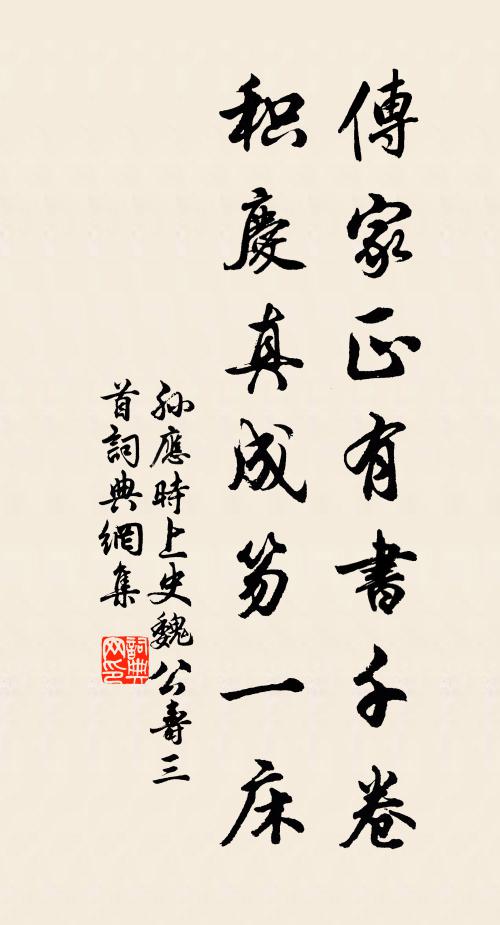 傳家正有書千卷
积慶真成笏一床
孫應時上史魏公壽三
首詞典網集
詞典网印